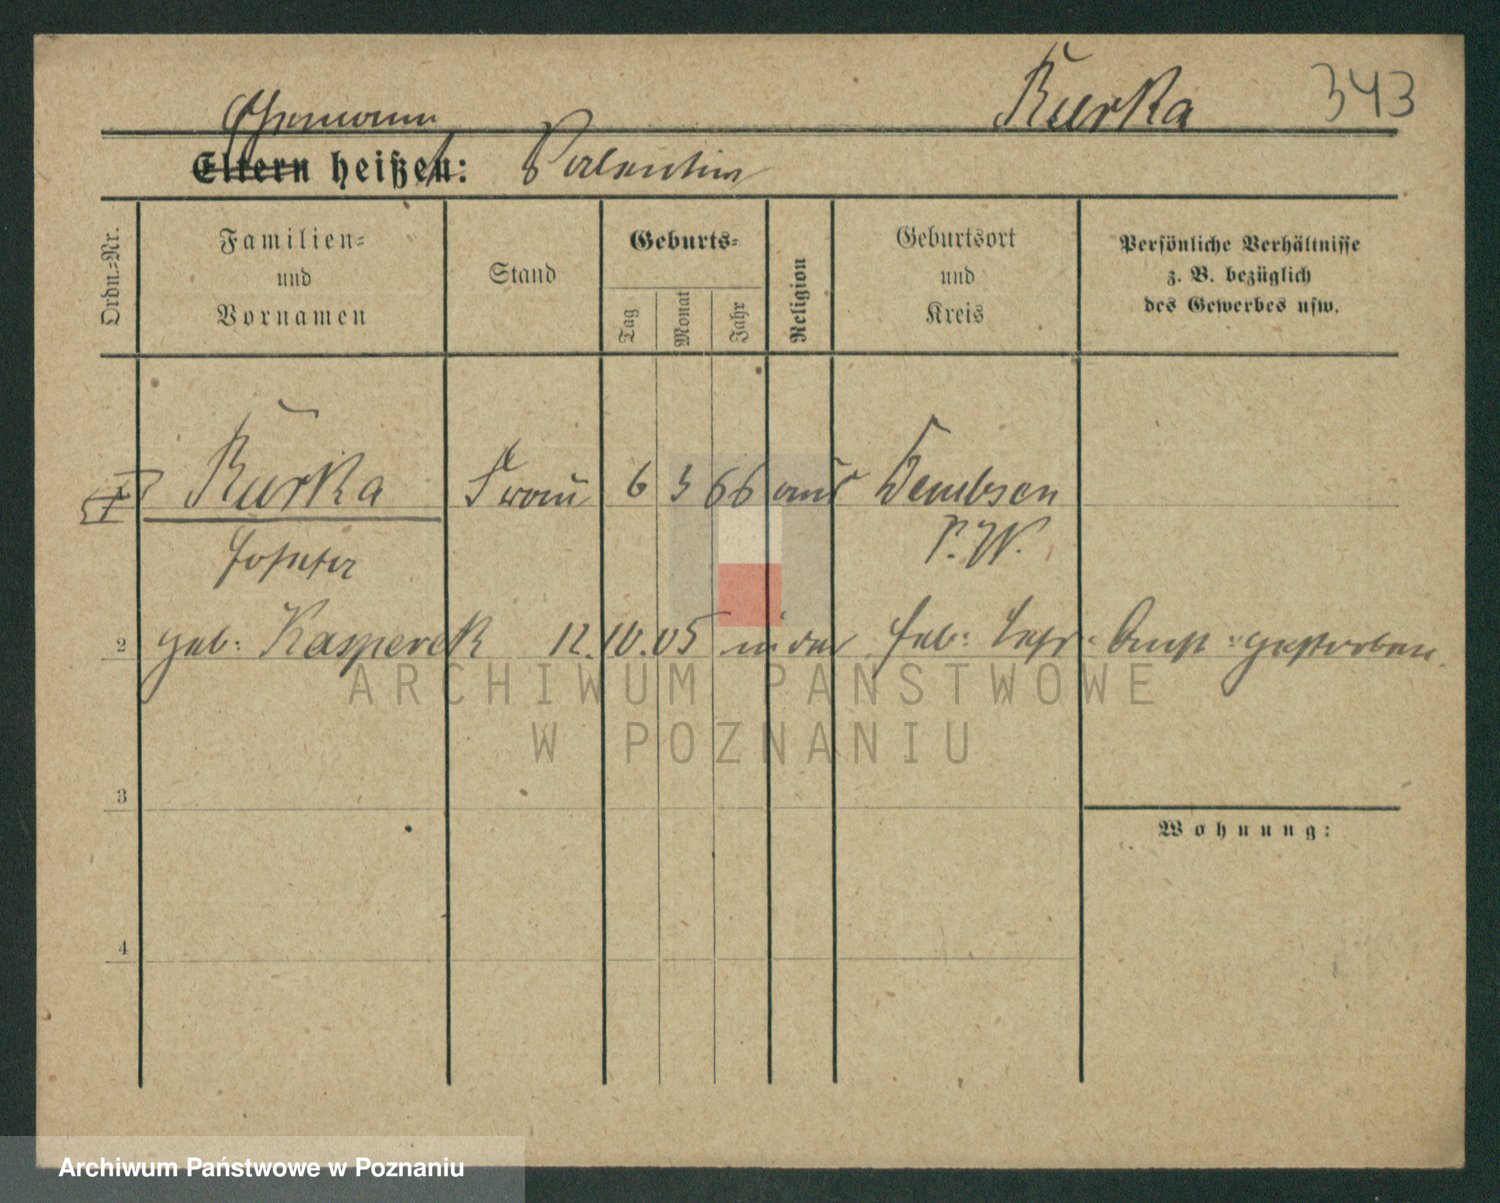 Kurka 343
Ehemann
Eltern heißen: Valentin
Ordn.-Nr.
Familien-
und
Vornamen
Stand
Geburts-
Tag
Monat
Jahr
Religion
Geburtsort
und
Kreis
Persönliche Verhältnisse
z. B. bezüglich
des Gewerbes usw.
Kurka Frau 6 3 66 Dembsen
P. W.
Josefa
2 geb: Kasperek 12.10.05 in der Heb: Lehr: Anst: gestorben.
3
Wohnung:
4
ARCHIWUM PAŃSTWOWE
W POZNANIU
Archiwum Państwowe w Poznaniu